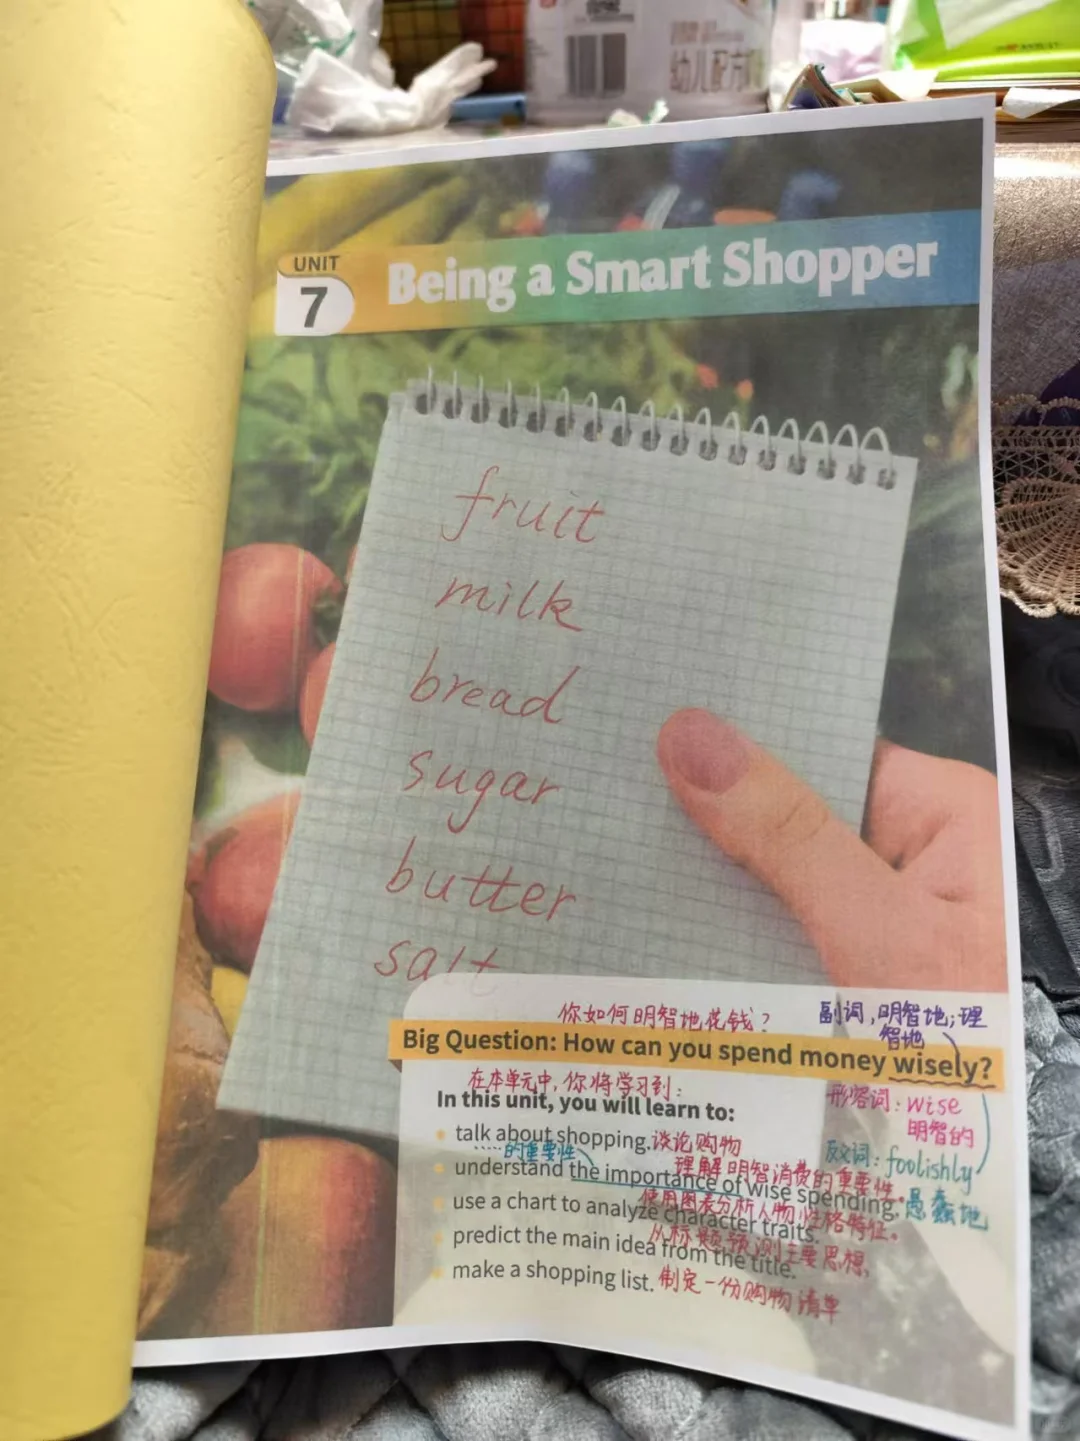 幼儿配方
UNIT
7
Being a Smart Shopper
fruit
milk
bread
sugar
butter
salt
你如何明智地花钱？
副词，明智地；理
智地
Big Question: How can you spend money wisely?
在本单元中，你将学习到：
In this unit, you will learn to:
形容词：wise
明智的
talk about shopping.谈论购物
的重要性
反义词：foolishly
愚蠢地
理解明智消费的重要性。
understand the importance of wise spending.
使用图表分析人物性格特征。
use a chart to analyze character traits.
从标题预测主要思想。
predict the main idea from the title.
make a shopping list.制定一份购物清单